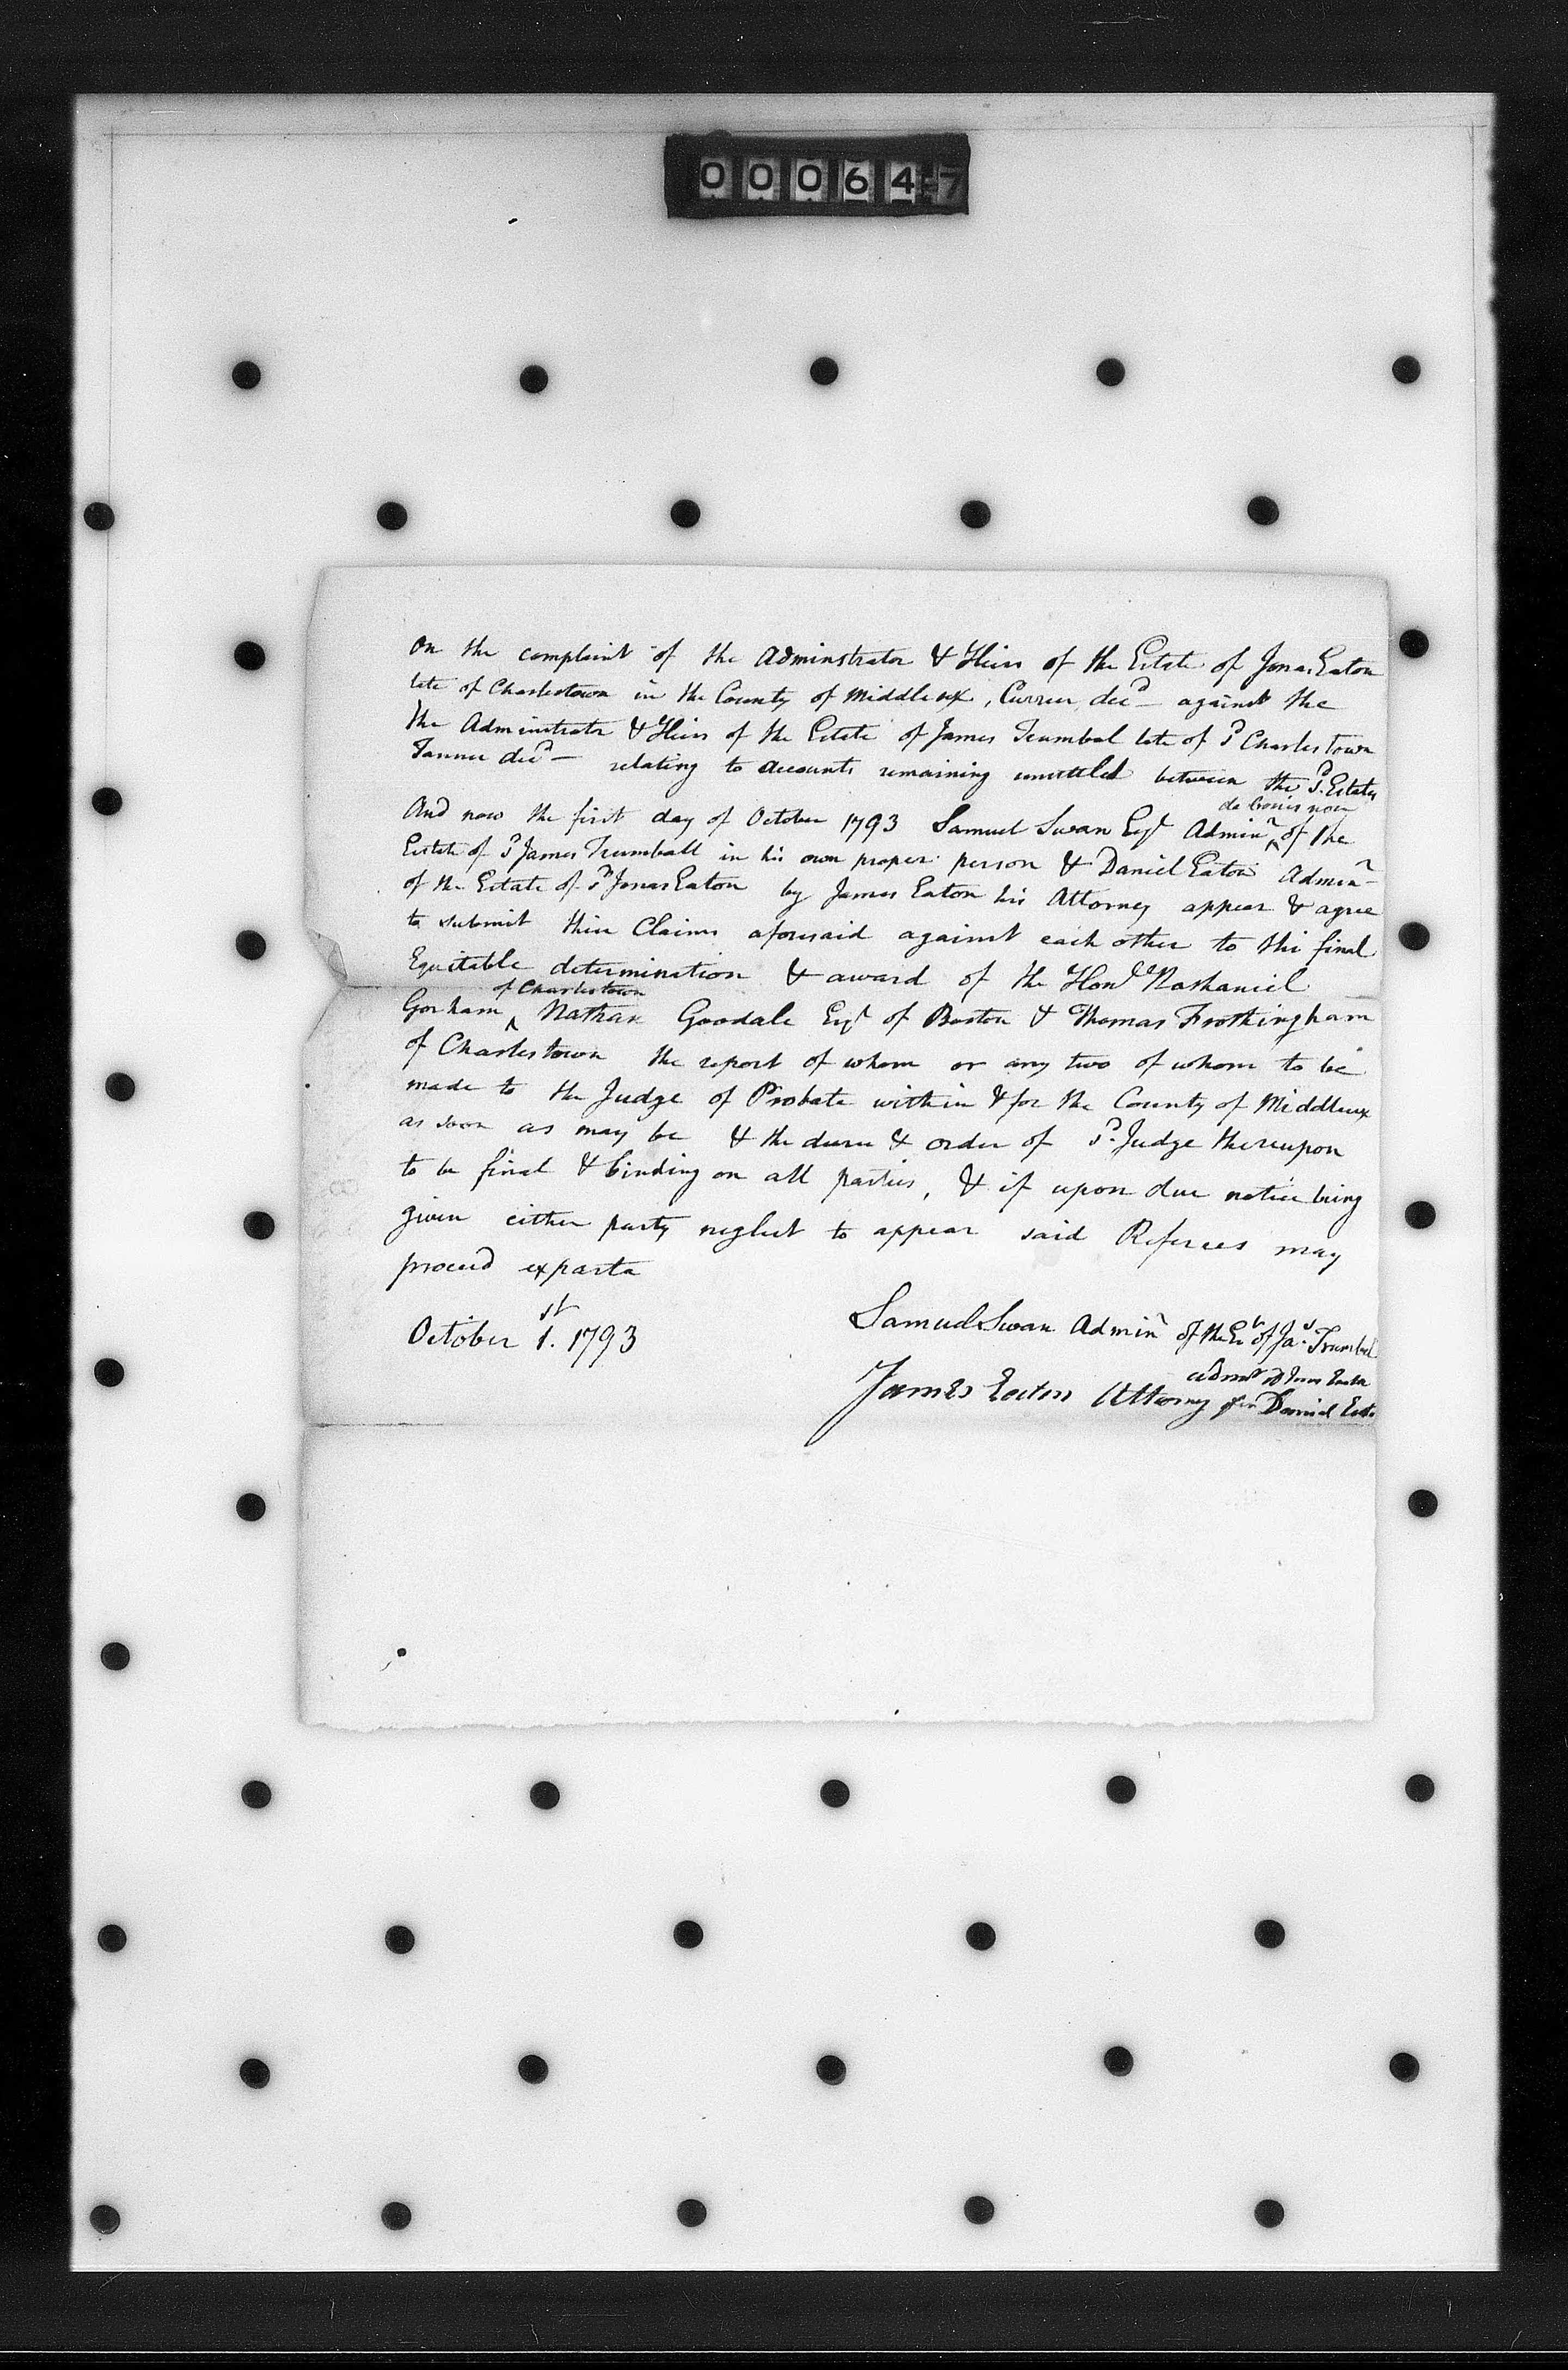 000647
On the complaint of the Adminstrator & Heirs of the Estate of Jonas Eaton
late of Charlestown in the County of Middlesex, Currier, decd against the
the Adminstrator & Heirs of the Estate of James Trumbal late of sd Charlestown
Tanner decd — relating to accounts remaining unsettled between the sd Estates
de bonis non
And now the first day of October 1793 Samuel Swan Esqr Adminr ^ of the
Estate of sd James Trumball in his own proper person & Daniel Eaton Adminr
of the Estate of sd Jonas Eaton by James Eaton his Attorney appear & agree
to submit their Claims aforesaid against each other to the final
Equitable determination & award of the Honl Nathaniel
of Charlestown
Gorham ^ Nathan Goodale Esqr of Boston & Thomas Frothingham
of Charlestown the report of whom or any two of whom to be
made to the Judge of Probate within & for the County of Middlesex
as soon as may be & the decree & order of sd Judge thereupon
to be final & binding on all parties, & if upon due notice being
given either party neglect to appear said Referees may
proceed exparta
October 1st. 1793
Samuel Swan Adminr of the Et of Jas Trumbal
admr of Jonas Eaton
James Eaton Attorney for Daniel Eato